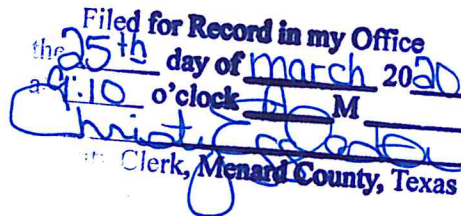 Filed for Record in my Office
the 25th day of march 2020
a 9:10 o'clock A M
Christy
Clerk, Menard County, Texas